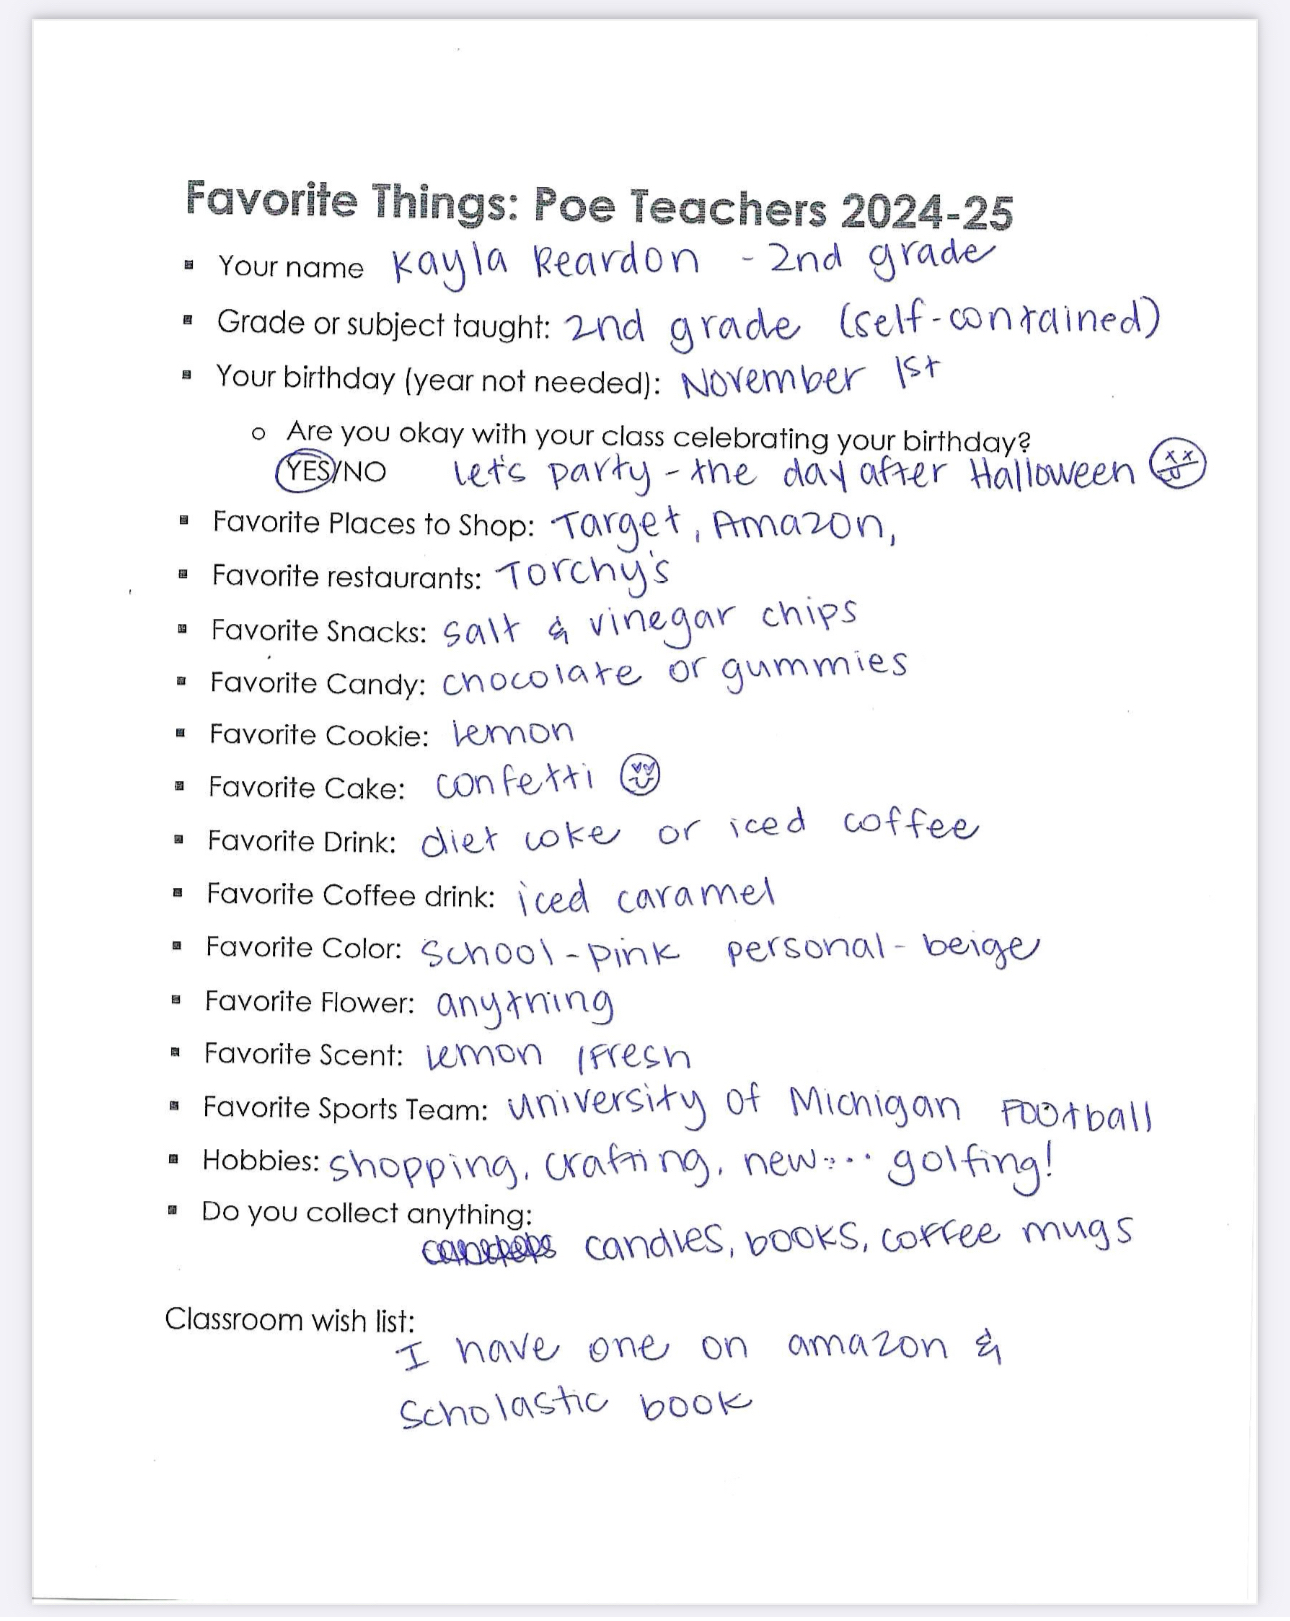 Favorite Things: Poe Teachers 2024-25
▪ Your name Kayla Reardon - 2nd grade
▪ Grade or subject taught: 2nd grade (self-contained)
▪ Your birthday (year not needed): November 1st
o Are you okay with your class celebrating your birthday?
YES/NO let's party - the day after Halloween
▪ Favorite Places to Shop: Target, Amazon,
▪ Favorite restaurants: Torchy's
▪ Favorite Snacks: salt & vinegar chips
▪ Favorite Candy: chocolate or gummies
▪ Favorite Cookie: lemon
▪ Favorite Cake: confetti
▪ Favorite Drink: diet coke or iced coffee
▪ Favorite Coffee drink: iced caramel
▪ Favorite Color: School - pink personal - beige
▪ Favorite Flower: anything
▪ Favorite Scent: lemon / Fresh
▪ Favorite Sports Team: University of Michigan Football
▪ Hobbies: shopping, crafting, new... golfing!
▪ Do you collect anything:
candles, books, coffee mugs
Classroom wish list:
I have one on amazon &
Scholastic book